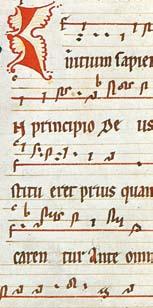 Initium sapien
N principio De us
stitu eret prius quam
caren tur Ante omn